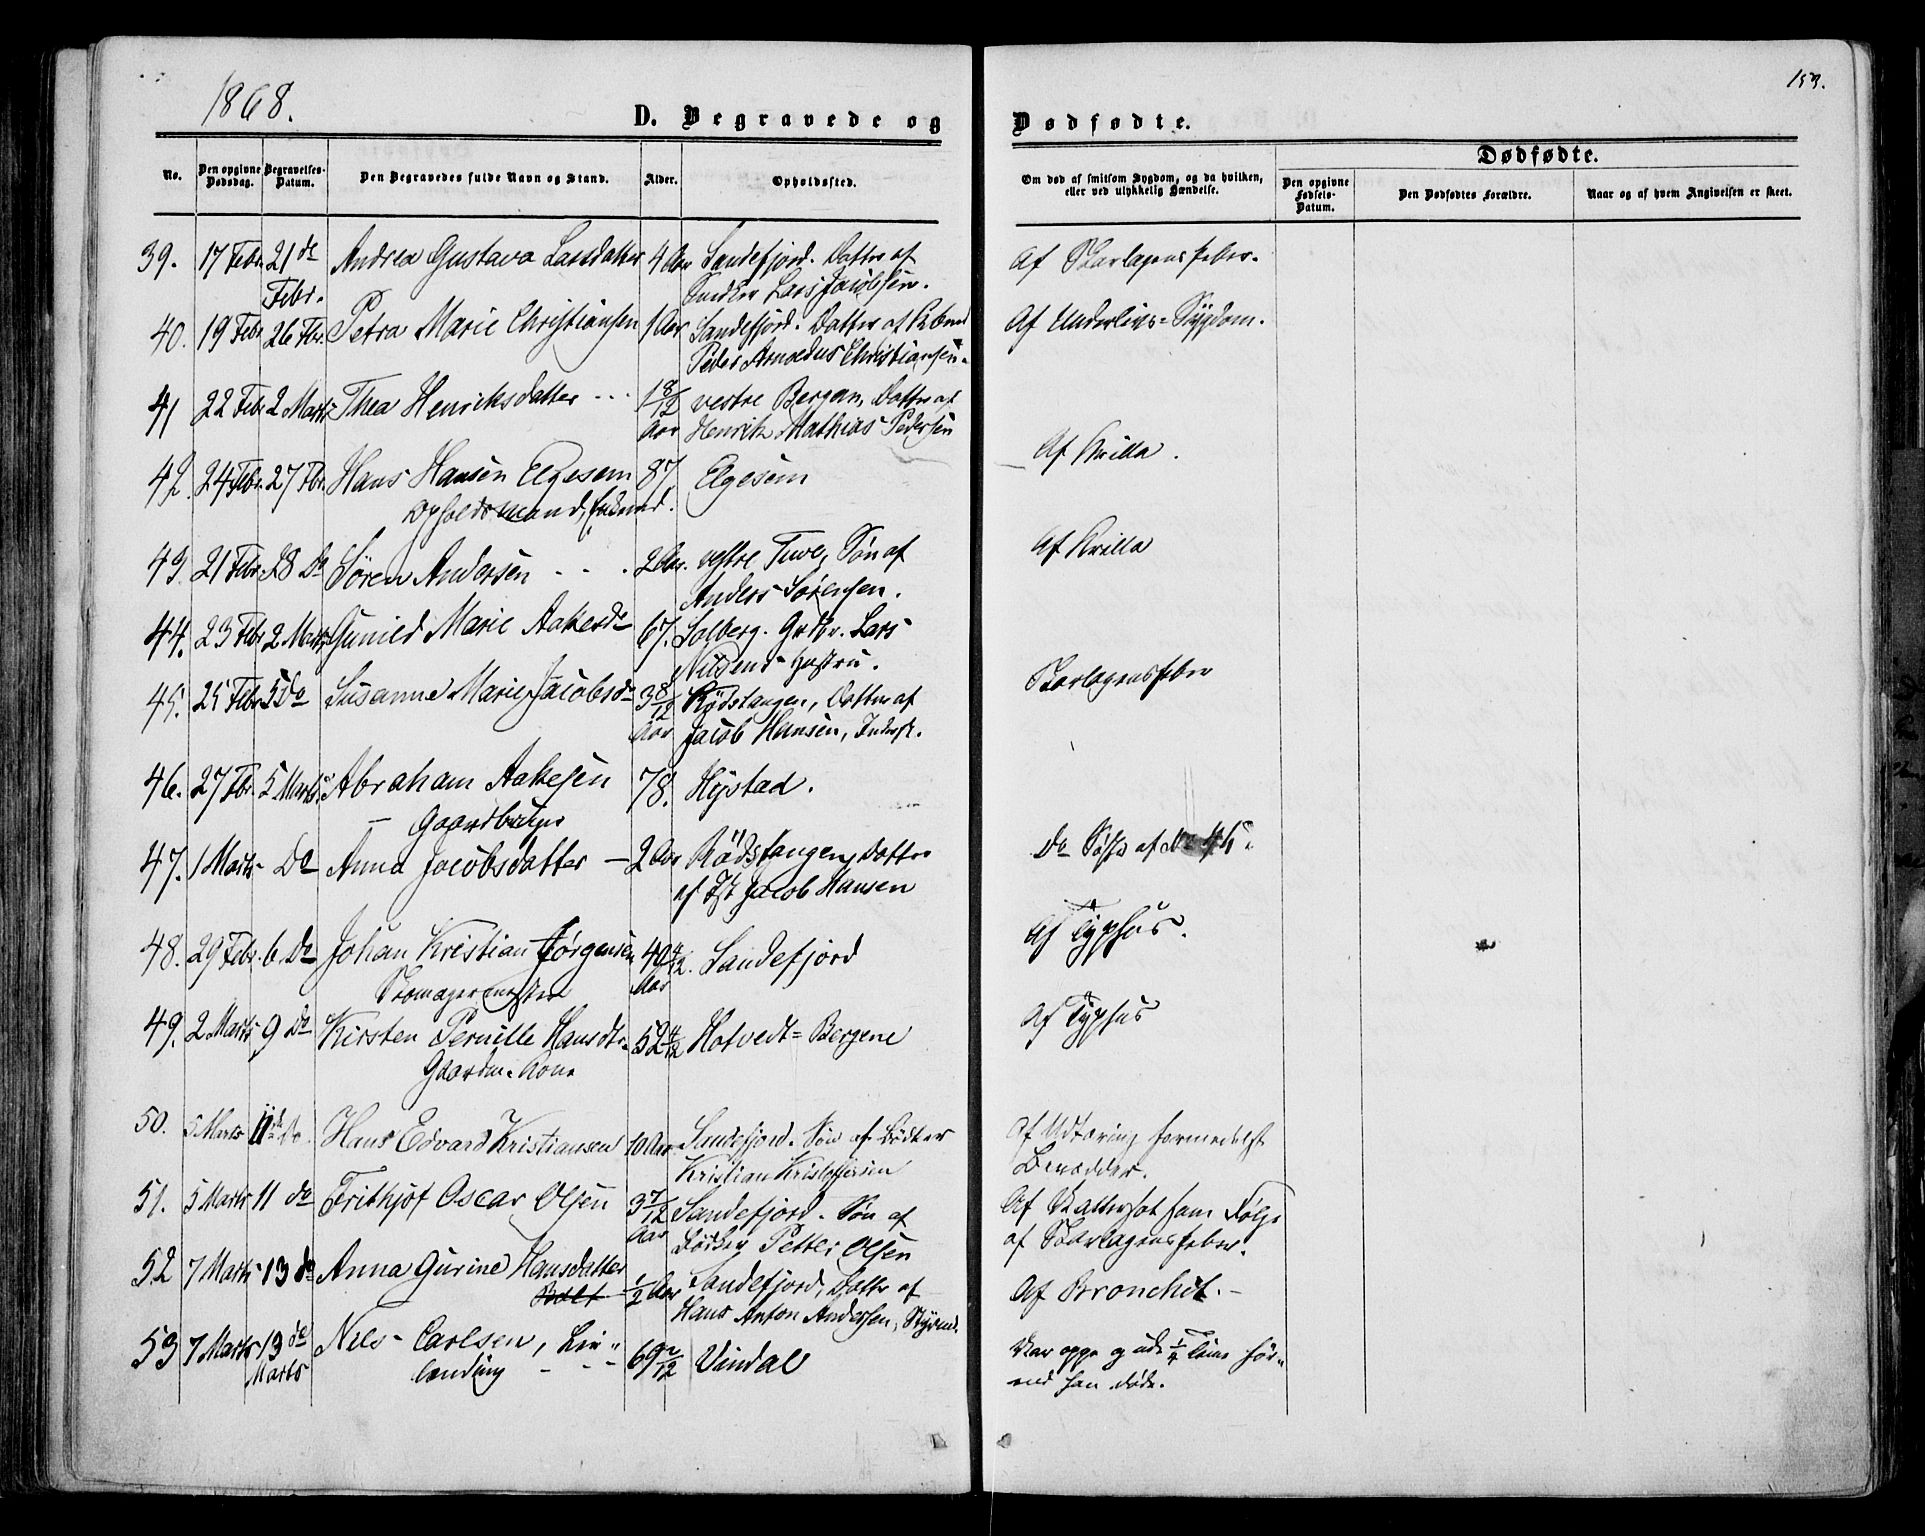 1868.
153.
D. Begravede og Dødfødte.
Dødfødte.
No. Den opgivne Dødsdag. Begravelses-Datum. Den Begravedes fulde Navn og Stand. Alder. Opholdssted. Om død af smitsom Sygdom, og da hvilken, eller ved ulykkelig Hændelse. Den opgivne Fødsels-Datum. Den Dødfødtes Forældre. Naar og af hvem Angivelsen er skeet.
39. 17 Febr. 21 de Andrea Gustava Larsdatter 4 Aar Sandefjord. Datter af Af Skarlagensfeber.
Febr. Snedker Lars Jacobsen.
40. 19 Febr 26 Fbr. Petra Marie Christiansen 1 Aar Sandefjord. Datter af Af Underlivs-Sygdom.
Peder Arnoldus Christiansen.
41 22 Febr 2 Marts Thea Henriksdatter - - - 1 8/12 vestre Bergan, Datter af
Aar Henrik Mathias Pedersen
Af Krilla.
42. 24 Febr. 27 Fbr. Hans Hansen Elgesem 87. Elgesem
Opholdsmand,
43. 21 Febr. 28 Do Sören Andersen - - - 2 Aar. vestre Tuve, Søn af Af Krilla
Anders Sörensen.
44. 23 Febr 2. Marts Gunild Marie Aakersdr 67. Solberg. Grdbr. Lars
Nilsens Hustru.
45. 25 Febr 5 Do Susanne Marie Jacobsdr 3 8/12 Rödstangen, Datter af Skarlagensfeber
Aar Jacob Hansen, Inderst.
46. 27 Fbr. 5 Marts Abraham Aakesen 78. Hystad.
Gaardbruger
47. 1 Marts Do Anna Jacobsdatter - 2 Aar Rödstangen, Datter Do Søster af No 45.
af Jacob Hansen
48. 29 Febr. 6. Do Johan Kristian Jörgensen 40 /12. Sandefjord Af Typhus.
Aar
Skomagermester
49. 2 Marts 9 Do Kirsten Pernille Hansdtr. 52 4/12 Hotvedt-Bergene Af Typhus
Gaardm. Kone
50. 5 Marts 11 Do. Hans Edvard Kristiansen 10 Aar Sandefjord. Søn af Bödker Af Udtæring formedelst
Kristian Kristoffersen
51. 5 Marts 11 do Frithjof Oscar Olsen 3 7/12 Sandefjord. Søn af Af Vattersot som Følge
Aar Petter Olsen af Skarlagensfeber.
52 7 Marts 13 do Anna Gurine Hansdatter 1/2 Aar Sandefjord, Datter af Af Bronchit.
Hans Anton Andersen, Styrmd.
53 7 Marts 13 de Nils Carlsen, 69 /12 Vindal Var oppe og ude 1/4 Time før-
Marts end han døde.